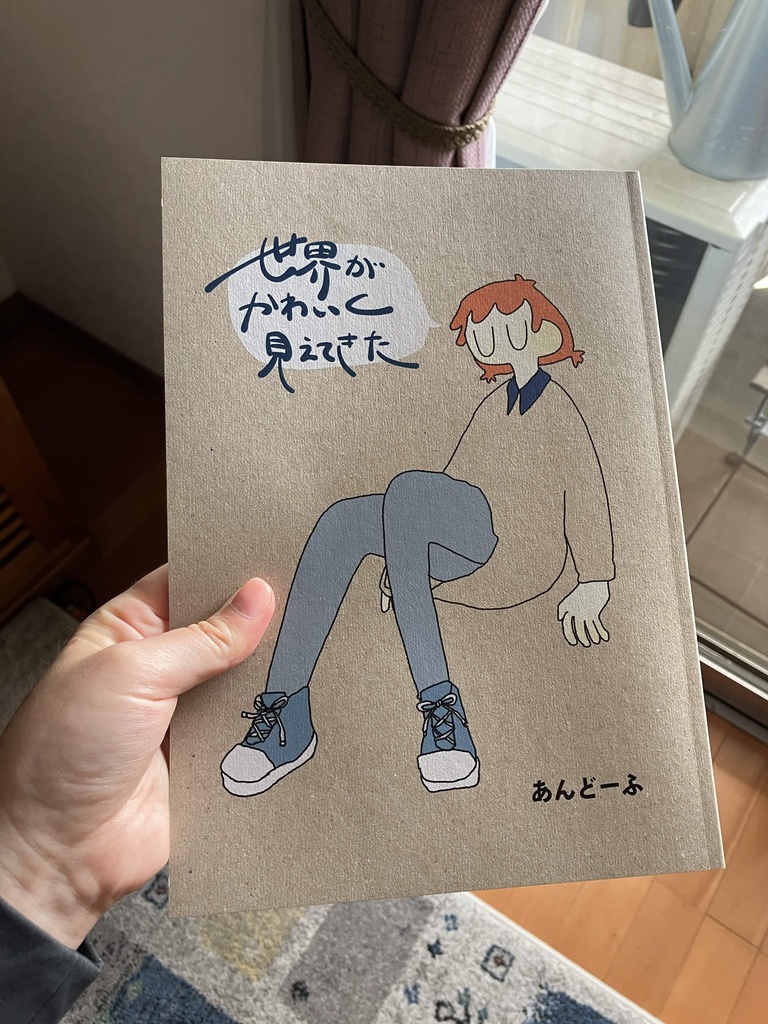 世界が
かわいく
見えてきた
あんどーふ